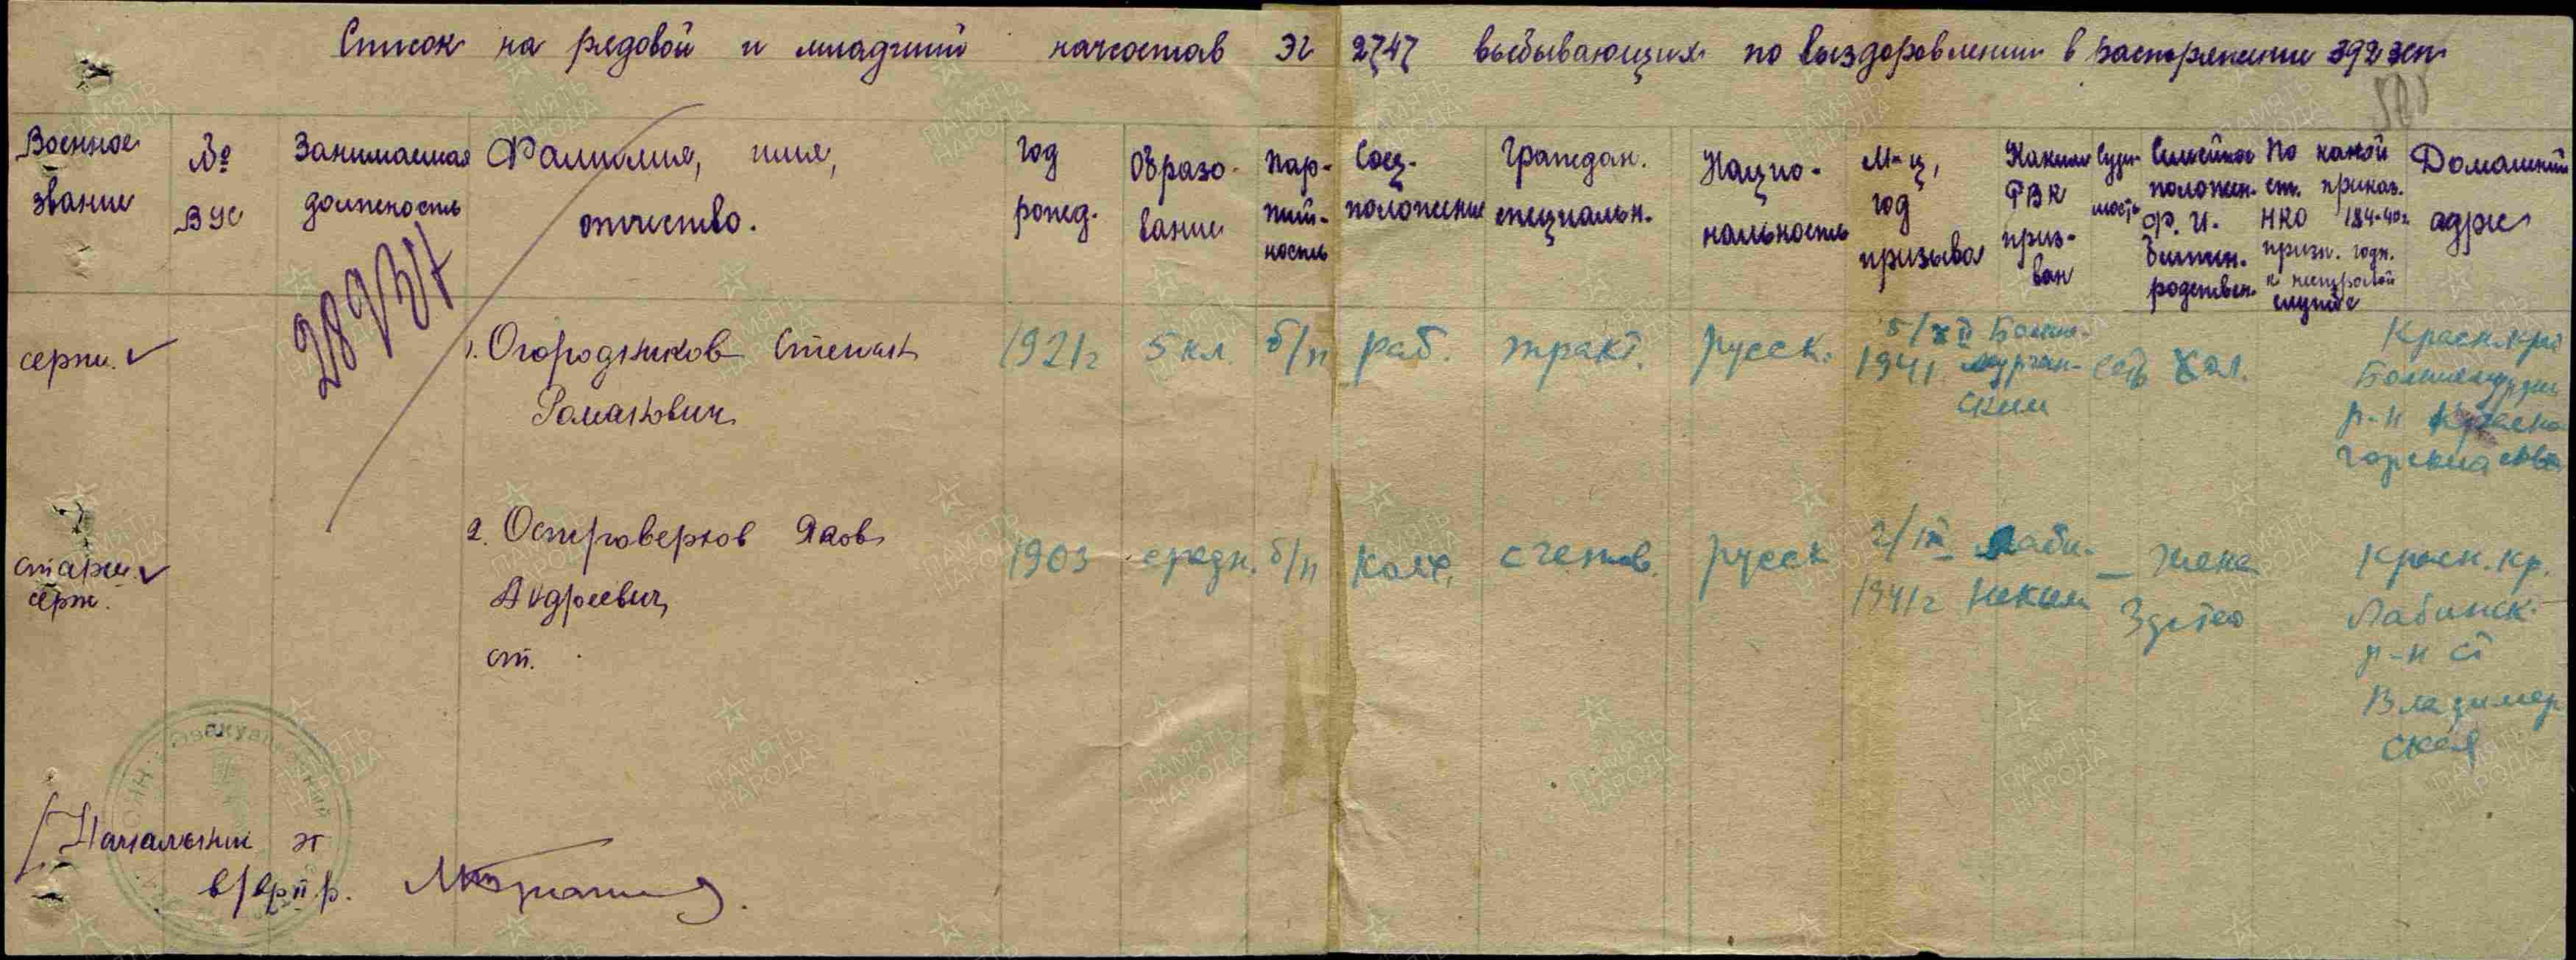 Список на рядовой и младший начсостав ЭГ 2747 выбывающих по выздоровлении в распоряжение 392 зсп
Военное звание
№ ВУС
Занимаемая должность
Фамилия, имя, отчество.
Год рожд.
Образование
Партийность
Соц. положение
Граждан. специальн.
Национальность
М-ц, год призыва
Каким РВК призван
Судимость
Семейное положен. Ф. И. ближн. родствен.
По какой ст. приказ. НКО 184-40г призн. годн. к нестроевой службе
Домашний адрес
серж. 1. Огородников Степан Романович 1921г 5 кл. б/п раб. тракт. русск. 5/XII 1941 Больше-муртин-ским есть хол. Красн.край
р-н
стар. серж. 2. Островерхов Яков Андреевич ст. 1903 средн. б/п колх. счетов. русск 1941г Лаби-нским – жена Красн. кр. Лабинск. р-н ст Владимирская
Начальник ЭГ
в/вр. II р.
ПАМЯТЬ НАРОДА